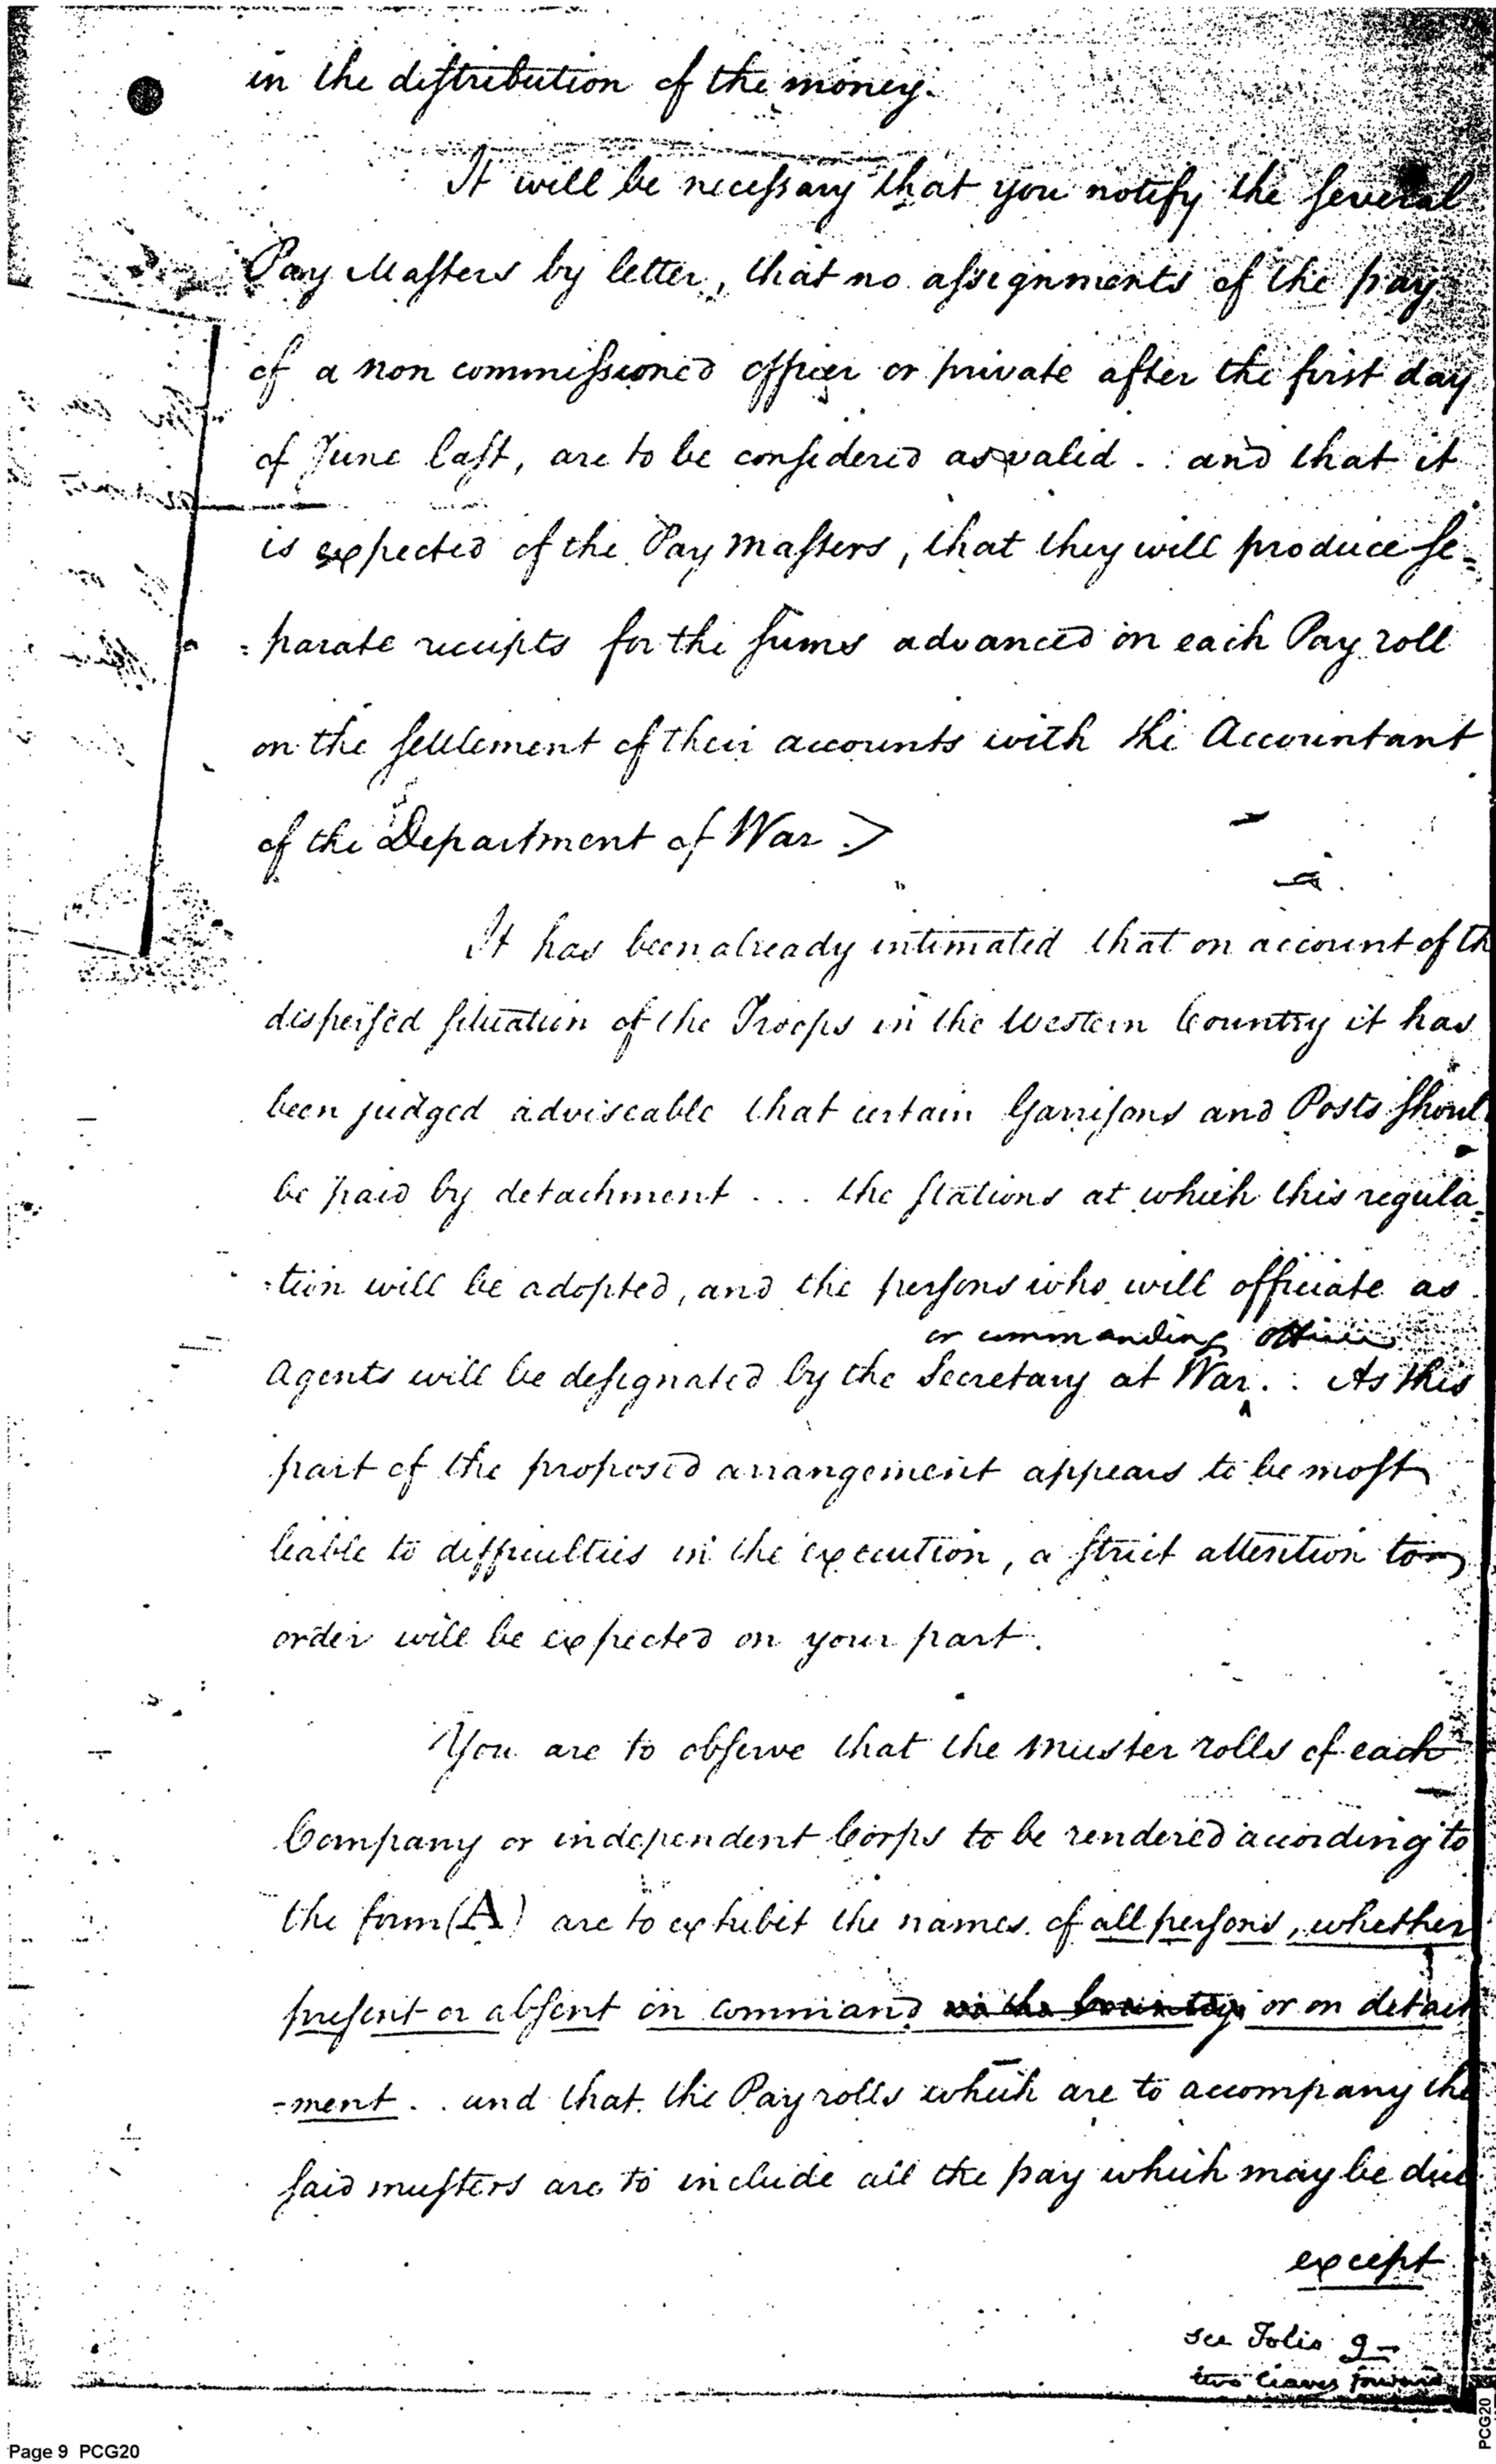 in the distribution of the money.
It will be necessary that you notify the several
Pay Masters by letter, that no assignments of the pay
of a non commissioned officer or private after the first day
of June last, are to be considered as valid . : and that it
is expected of the Pay masters, that they will produce se-
=parate receipts for the sums advanced on each Pay roll
on the settlement of their accounts with the Accountant
of the Department of War.>
It has been already intimated that on account of th
dispersed situation of the Troops in the Western Country it has
been judged adviseable that certain Garrisons and Posts shoul
be paid by detachment . . . the stations at which this regula=
=tion will be adopted, and the persons who will officiate as
or commanding officer
Agents will be designated by the Secretary at War . : As this
part of the proposed arrangement appears to be most
liable to difficulties in the execution, a strict attention to
order will be expected on your part.
You are to observe that the muster rolls of each
Company or independent Corps to be rendered according to
the form (A) are to exhibit the names of all persons, whether
present or absent on command in the Country or on detach
-ment . . and that the Pay rolls which are to accompany the
said musters are to include all the pay which may be due
except
see Folio 9-
two leaves forward
Page 9 PCG20
PCG20